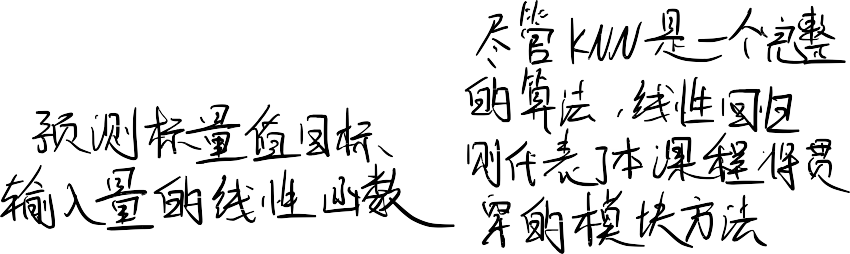 预测标量值目标、
输入量的线性函数
尽管KNN是一个完整
的算法,线性回归
则代表了本课程得贯
穿的模块方法